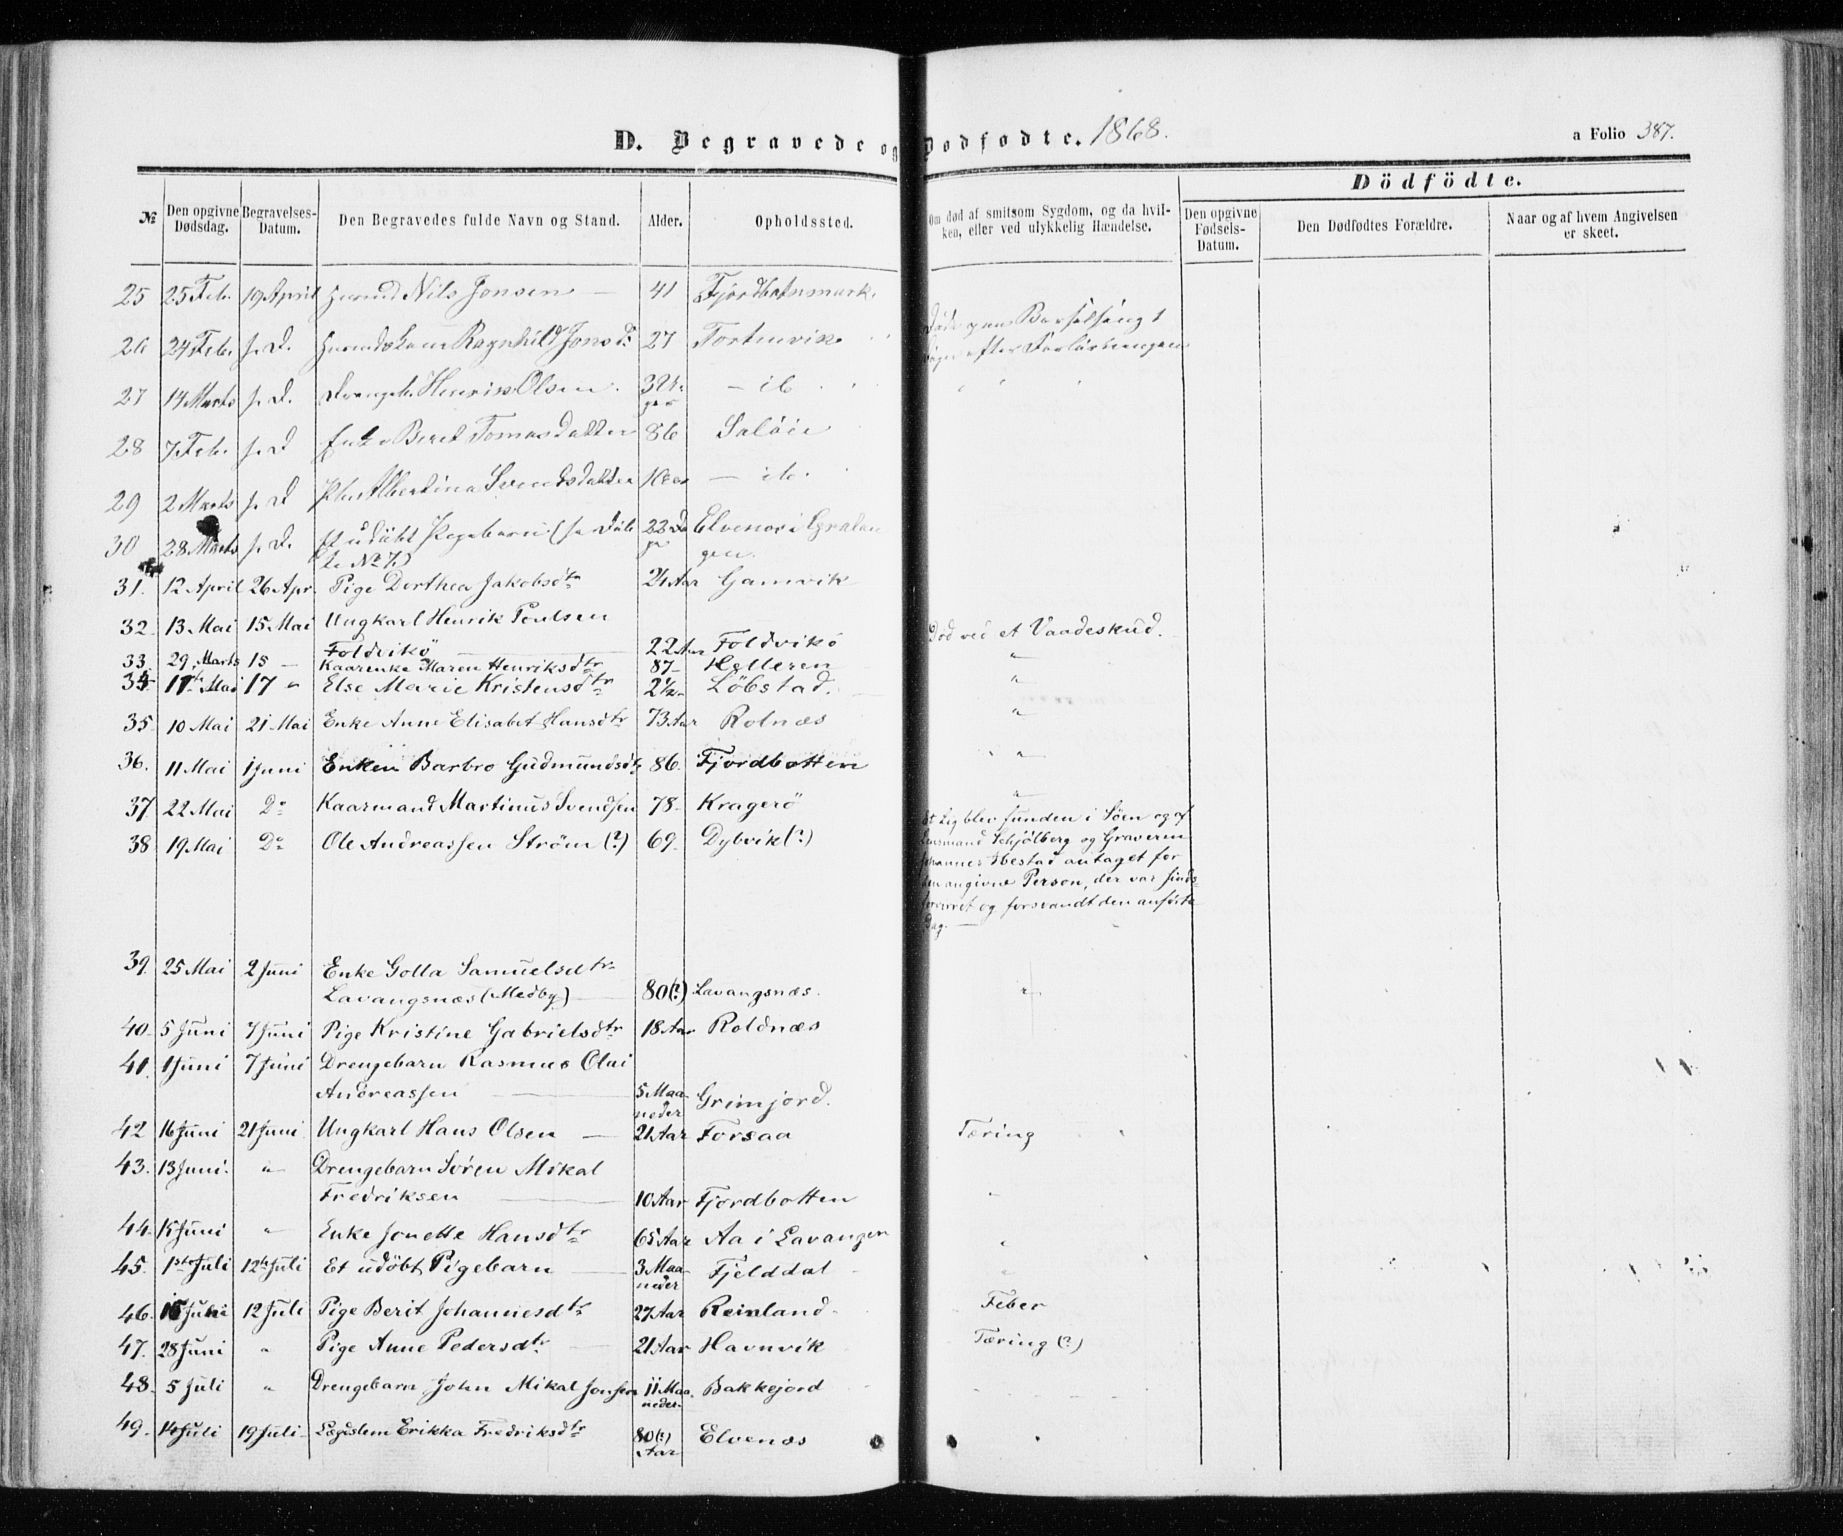 D. Begravede og Dødfødte. 1868.
a Folio 387.
Dödfödte.
№
Den opgivne Dødsdag.
Begravelses-Datum.
Den Begravedes fulde Navn og Stand.
Alder.
Opholdssted.
Om død af smitsom Sygdom, og da hvilken, eller ved ulykkelig Hændelse.
Den opgivne Fødsels-Datum.
Den Dødfødtes Forældre.
Naar og af hvem Angivelsen er skeet.
25 25 Feb. 19 April Nils Jonsen 41 Fjordbotnmark.
26 24 Feb. s. D. Ragnhild Jonsd. 27
27 14 Marts s. D. Henrik Olsen. - ib
28 7 Feb. s. D Enke Beret Tomasdatter 86 Salöie
29 2 Marts s. D Albertina Svendsdatter - ib.
30 28 Marts s. D. Et udöbt Pigebarn (se Döbte No 7.) 22 Dage Elvenes i Gratangen.
31. 12 April 26 Apr. Pige Dorthea Jakobsdtr 21 Aar Gamvik
32. 13 Mai 15 Mai Ungkarl Henrik Poulsen
Foldvikö 22 Aar Foldvikö Död ved et Vaadeskud.
33. 29 Marts 15 — Kaarenke Maren Henriksdtr 87- Helleren "
34. 17de Mai 17 " Else Marie Kristensdtr 2½ Löbstad. "
35. 10 Mai 21 Mai Enke Anne Elisabet Hansdtr 73 Aar Rolnæs "
36. 11 Mai 1 Juni Enken Barbro Gudmundsdtr 86. Fjordbotten "
37 22 Mai Do Kaarmand Martinus Svendsen 78- Kragerö "
38 19 Mai Do Ole Andreassen Ström (?) 69. Dybvik (?) Et Lig blev funden i Söen og af
Lensmand Schjölberg og Graveren
Johannes Ibestad antaget for
den angivne Person, der var sinds-
forvirret og forsvandt den anförte
Dag.
39. 25 Mai 2 Juni Enke Golla Samuelsdtr
Lavangsnæs (Medby) 80 (?) Lavangsnæs. "
40. 5 Juni 7 Juni Pige Kristine Gabrielsdtr 18 Aar Roldnæs
41. 1 Juni 7 Juni Drengebarn Rasmus Olai
Andreassen 5 Maaneder Grimjord.
42 16 Juni 21 Juni Ungkarl Hans Olsen 21 Aar Forsaa Tæring
43. 13 Juni. " Drengebarn Sören Mikal
Fredriksen 10 Aar Fjordbotten "
44. 15 Juni " Enke Jonette Hansdtr 65 Aar Aa i Lavangen "
45. 1ste Juli 12te Juli Et udöbt Pigebarn 3 Maaneder Fjelddal "
46. 12 Juli Pige Berit Johannesdtr 27 Aar Reinland Feber
47. 28 Juni " Pige Anne Pedersdtr 21 Aar Havnvik Tæring (?)
48. 5 Juli " Drengebarn John Mikal Jonsen 11 Maaneder Bakkejord
49. 14 Juli 19 Juli Lægdslem Erikka Fredriksdtr 80 (?) Aar Elvenæs